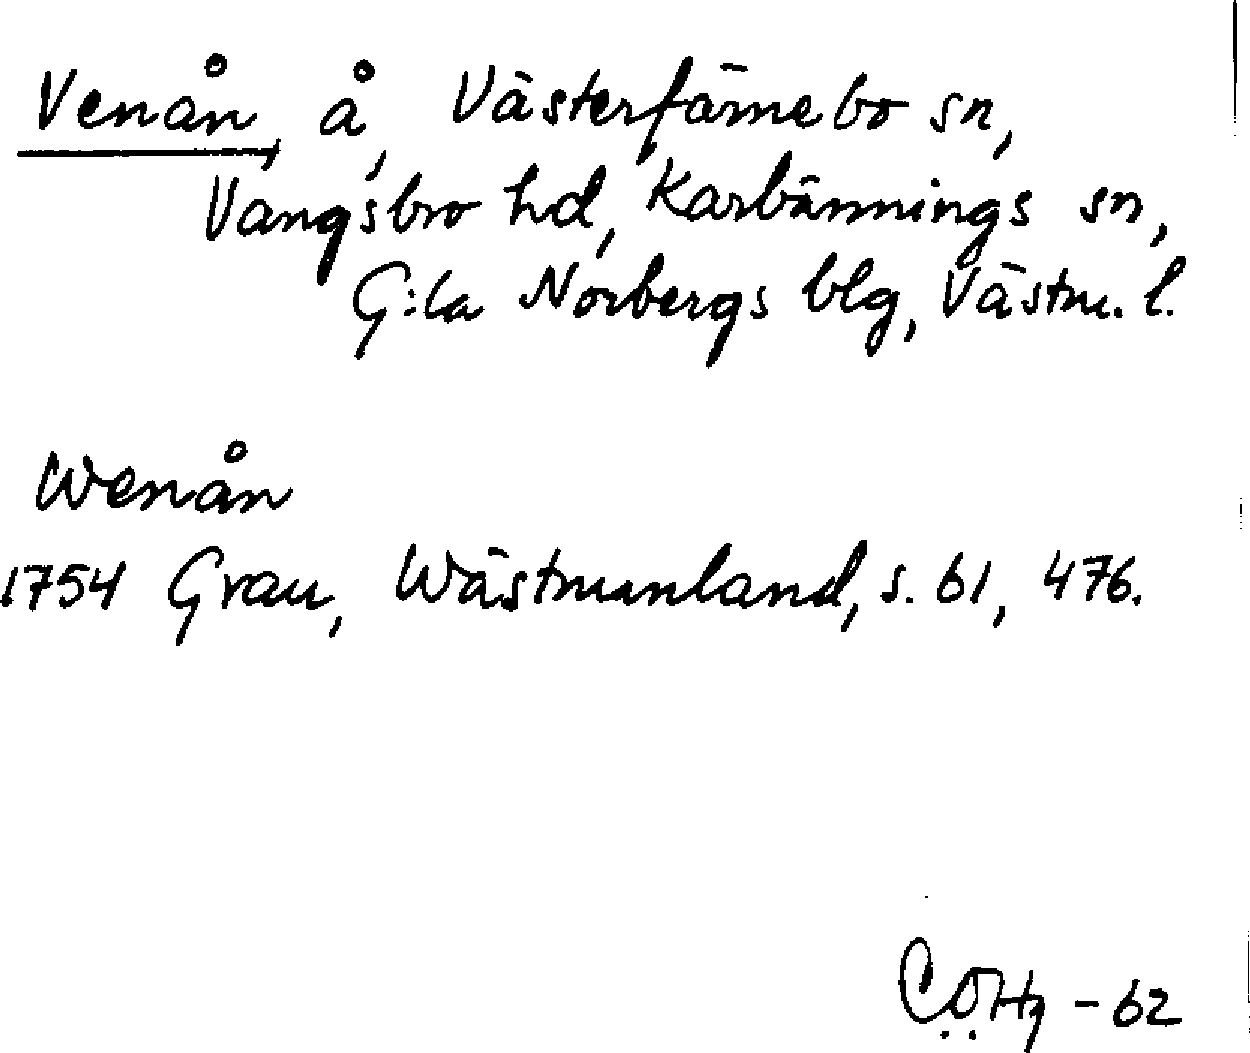 Venån, å, Västerfärnebo sn,
Vangsbro hd, Karbännings sn,
G:la Norbergs blg, Västm. l.
Wenån
1754 Grau, Wästmanland, s. 61, 476.
CÖHg - 62